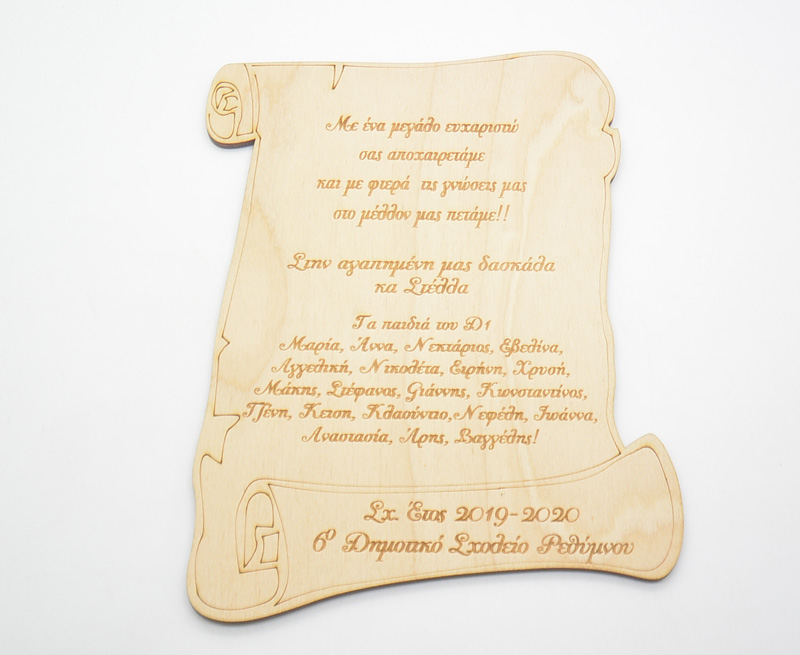 Με ένα μεγάλο ευχαριστώ
σας αποχαιρετάμε
και με φτερά τις γνώσεις μας
στο μέλλον μας πετάμε!!
Στην αγαπημένη μας δασκάλα
κα Στέλλα
Τα παιδιά του Δ1
Μαρία, Άννα, Νεκτάριος, Εβελίνα,
Αγγελική, Νικολέτα, Ειρήνη, Χρυσή,
Μάκης, Στέφανος, Γιάννης, Κωνσταντίνος,
Τζένη, Κειση, Κλαούντιο,Νεφέλη, Ιωάννα,
Αναστασία, Άρης, Βαγγέλης!
Σχ. Έτος 2019-2020
6ο Δημοτικό Σχολείο Ρεθύμνου